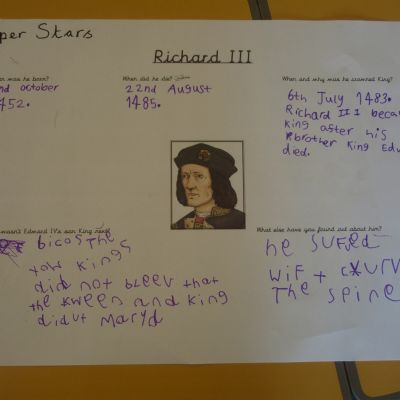 per Stars
Richard III
en was he born?
nd october
452.
When did he die?
22nd August
1485.
When and why was he crowned King?
6th July 1483.
Richard III becau
king after his
brother King Edu
died.
wasn't Edward IV's son King next?
bicos the
tow kings
did not bleev that
the kween and king
didut maryd
What else have you found out about him?
he suffed
wif + curv
The spine